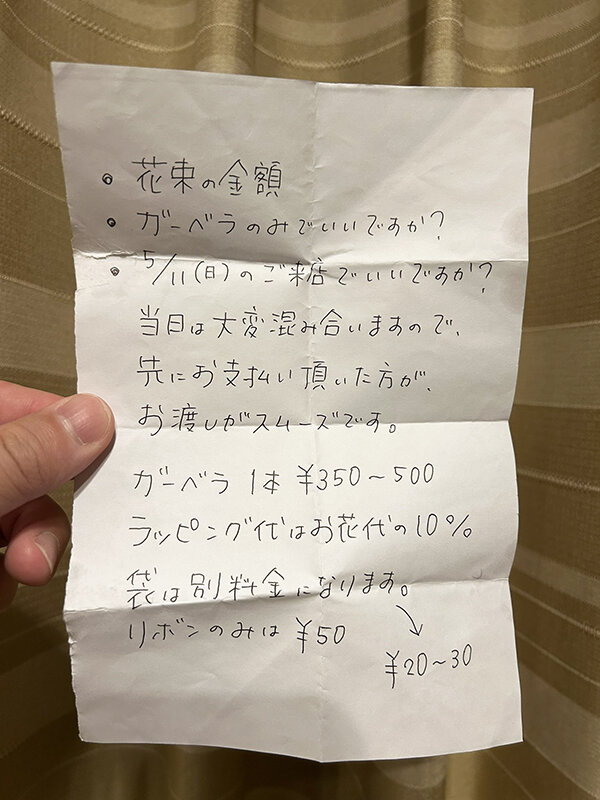 • 花束の金額
• ガーベラのみでいいですか?
• 5/11(日)のご来店でいいですか?
当日は大変混み合いますので、
先にお支払い頂いた方が、
お渡しがスムーズです。
ガーベラ 1本 ¥350〜500
ラッピング代はお花代の10%
袋は別料金になります。
リボンのみは ¥50
¥20〜30